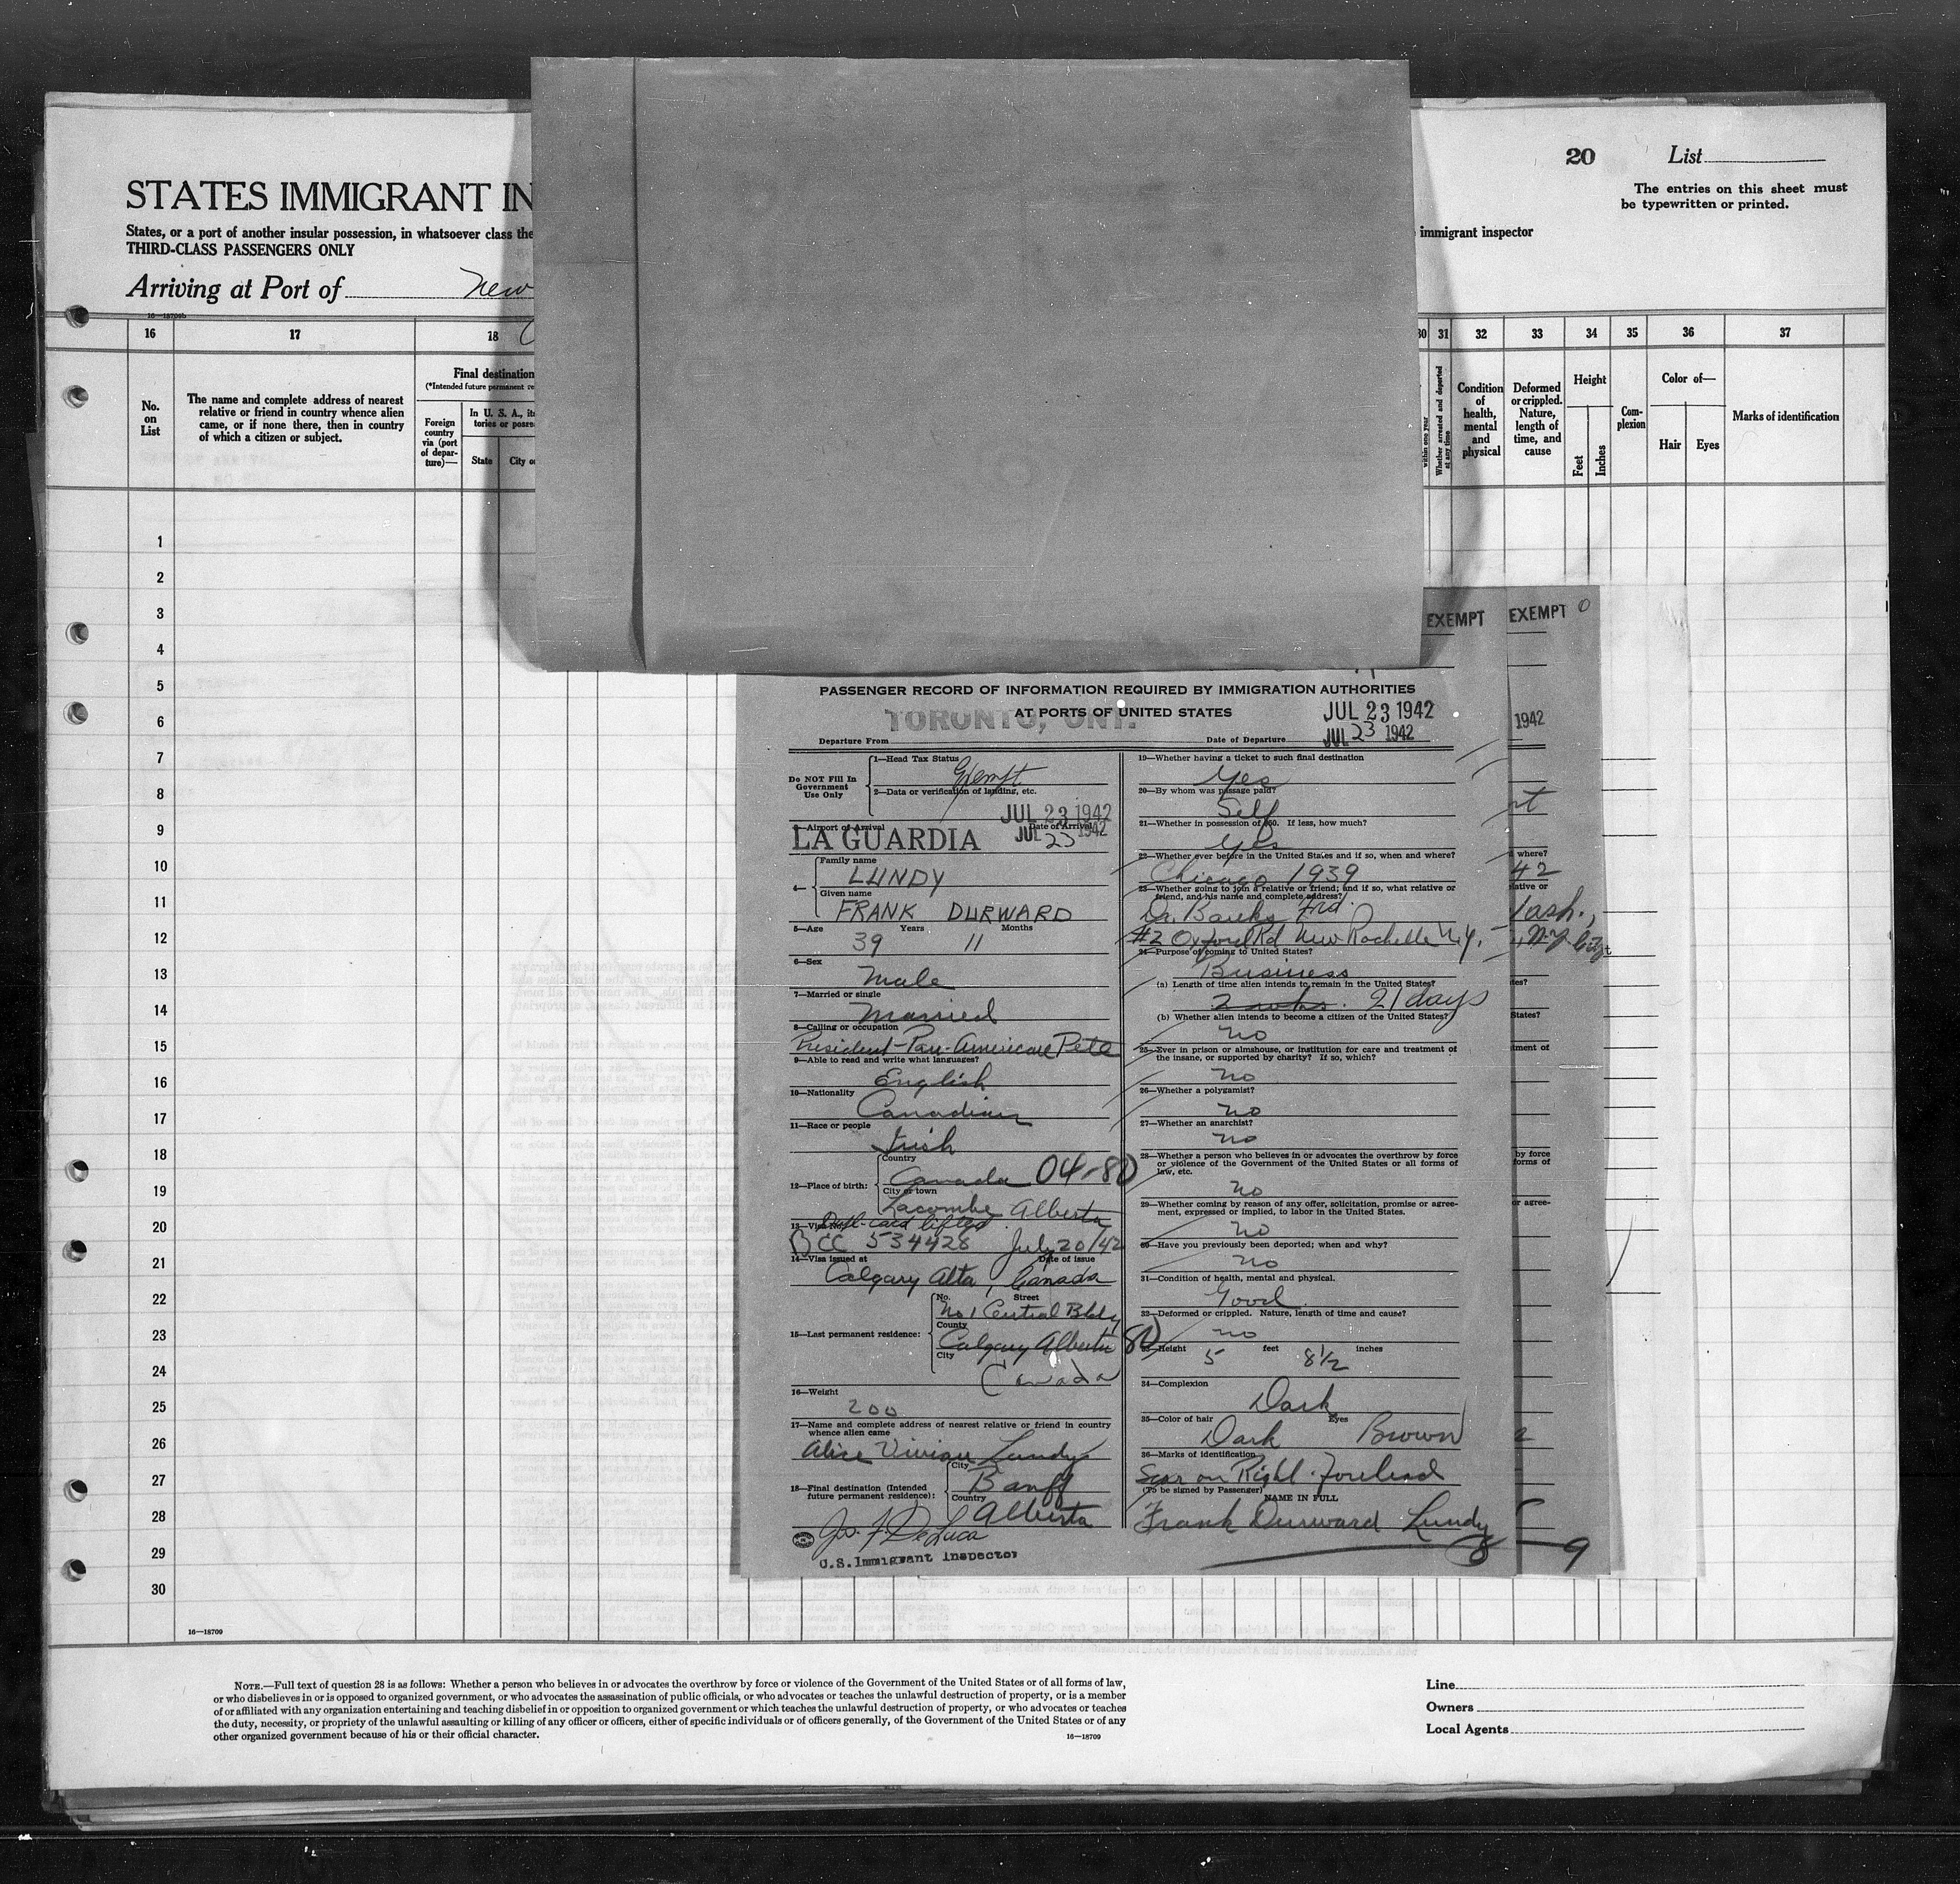 20
List
The entries on this sheet must
be typewritten or printed.
STATES IMMIGRANT IN
States, or a port of another insular possession, in whatsoever class the
immigrant inspector
THIRD-CLASS PASSENGERS ONLY
Arriving at Port of New
16—18709b
16 17 18 30 31 32 33 34 35 36 37
No.
on
List
The name and complete address of nearest
relative or friend in country whence alien
came, or if none there, then in country
of which a citizen or subject.
Final destination
(*Intended future permanent re
Foreign
country
via (port
of depar-
ture)—
In U. S. A., its
tories or posse
State City o
within one year
Whether arrested and deported
at any time
Condition
of
health,
mental
and
physical
Deformed
or crippled.
Nature,
length of
time, and
cause
Height
Feet
Inches
Com-
plexion
Color of—
Hair Eyes
Marks of identification
1
2
3
4
5
6
7
8
9
10
11
12
13
14
15
16
17
18
19
20
21
22
23
24
25
26
27
28
29
30
EXEMPT EXEMPT 0
PASSENGER RECORD OF INFORMATION REQUIRED BY IMMIGRATION AUTHORITIES
AT PORTS OF UNITED STATES
TORONTO, ONT.
JUL 23 1942
JUL 23 1942
Departure From
Date of Departure
Do NOT Fill In
Government
Use Only
1—Head Tax Status
Exempt
2—Data or verification of landing, etc.
JUL 23 1942
3—Airport of Arrival
Date of Arrival
LA GUARDIA JUL 23 1942
4—
Family name
LUNDY
Given name
FRANK DURWARD
5—Age Years Months
39 11
6—Sex
Male
7—Married or single
Married
8—Calling or occupation
President-Pan-American Pete
9—Able to read and write what languages?
English
10—Nationality
Canadian
11—Race or people
Irish
12—Place of birth:
Country
Canada 04-80
City or town
Lacombe Alberta
13—Visa No.
card lifted
BCC 534428 July 20/42
14—Visa issued at Date of issue
Calgary Alta, Canada
15—Last permanent residence:
No. Street
No 1 Central Bldg
County
Calgary Alberta 80
City
Canada
16—Weight
200
17—Name and complete address of nearest relative or friend in country
whence alien came
Alice Vivian Lundy
18—Final destination (Intended
future permanent residence):
City
Banff
Country
Alberta
Jo. F. DeLuca
U.S. Immigrant Inspector
19—Whether having a ticket to such final destination
Yes
20—By whom was passage paid?
Self
21—Whether in possession of $50. If less, how much?
Yes
22—Whether ever before in the United States and if so, when and where?
Chicago 1939
23—Whether going to join a relative or friend; and if so, what relative or
friend, and his name and complete address?
Dr. Banks Frd.
#2 Oxford Rd New Rochelle N.Y.
24—Purpose of coming to United States?
Business
(a) Length of time alien intends to remain in the United States?
2 wks. 21 days
(b) Whether alien intends to become a citizen of the United States?
no
25—Ever in prison or almshouse, or institution for care and treatment of
the insane, or supported by charity? If so, which?
no
26—Whether a polygamist?
no
27—Whether an anarchist?
no
28—Whether a person who believes in or advocates the overthrow by force
or violence of the Government of the United States or all forms of
law, etc.
no
29—Whether coming by reason of any offer, solicitation, promise or agree-
ment, expressed or implied, to labor in the United States.
no
30—Have you previously been deported; when and why?
no
31—Condition of health, mental and physical.
Good
32—Deformed or crippled. Nature, length of time and cause?
no
33—Height feet inches
5 8 1/2
34—Complexion
Dark
35—Color of hair Eyes
Dark Brown
36—Marks of identification
Scar on Right Forehead
(To be signed by Passenger)
NAME IN FULL
Frank Durward Lundy
8
9
1942
rt
where?
42
lative or
lash.,
, N.Y. City
tes?
States?
tment of
by force
forms of
or agree-
16—18709
NOTE.—Full text of question 28 is as follows: Whether a person who believes in or advocates the overthrow by force or violence of the Government of the United States or of all forms of law,
or who disbelieves in or is opposed to organized government, or who advocates the assassination of public officials, or who advocates or teaches the unlawful destruction of property, or is a member
of or affiliated with any organization entertaining and teaching disbelief in or opposition to organized government or which teaches the unlawful destruction of property, or who advocates or teaches
the duty, necessity, or propriety of the unlawful assaulting or killing of any officer or officers, either of specific individuals or of officers generally, of the Government of the United States or of any
other organized government because of his or their official character.
16—18709
Line
Owners
Local Agents